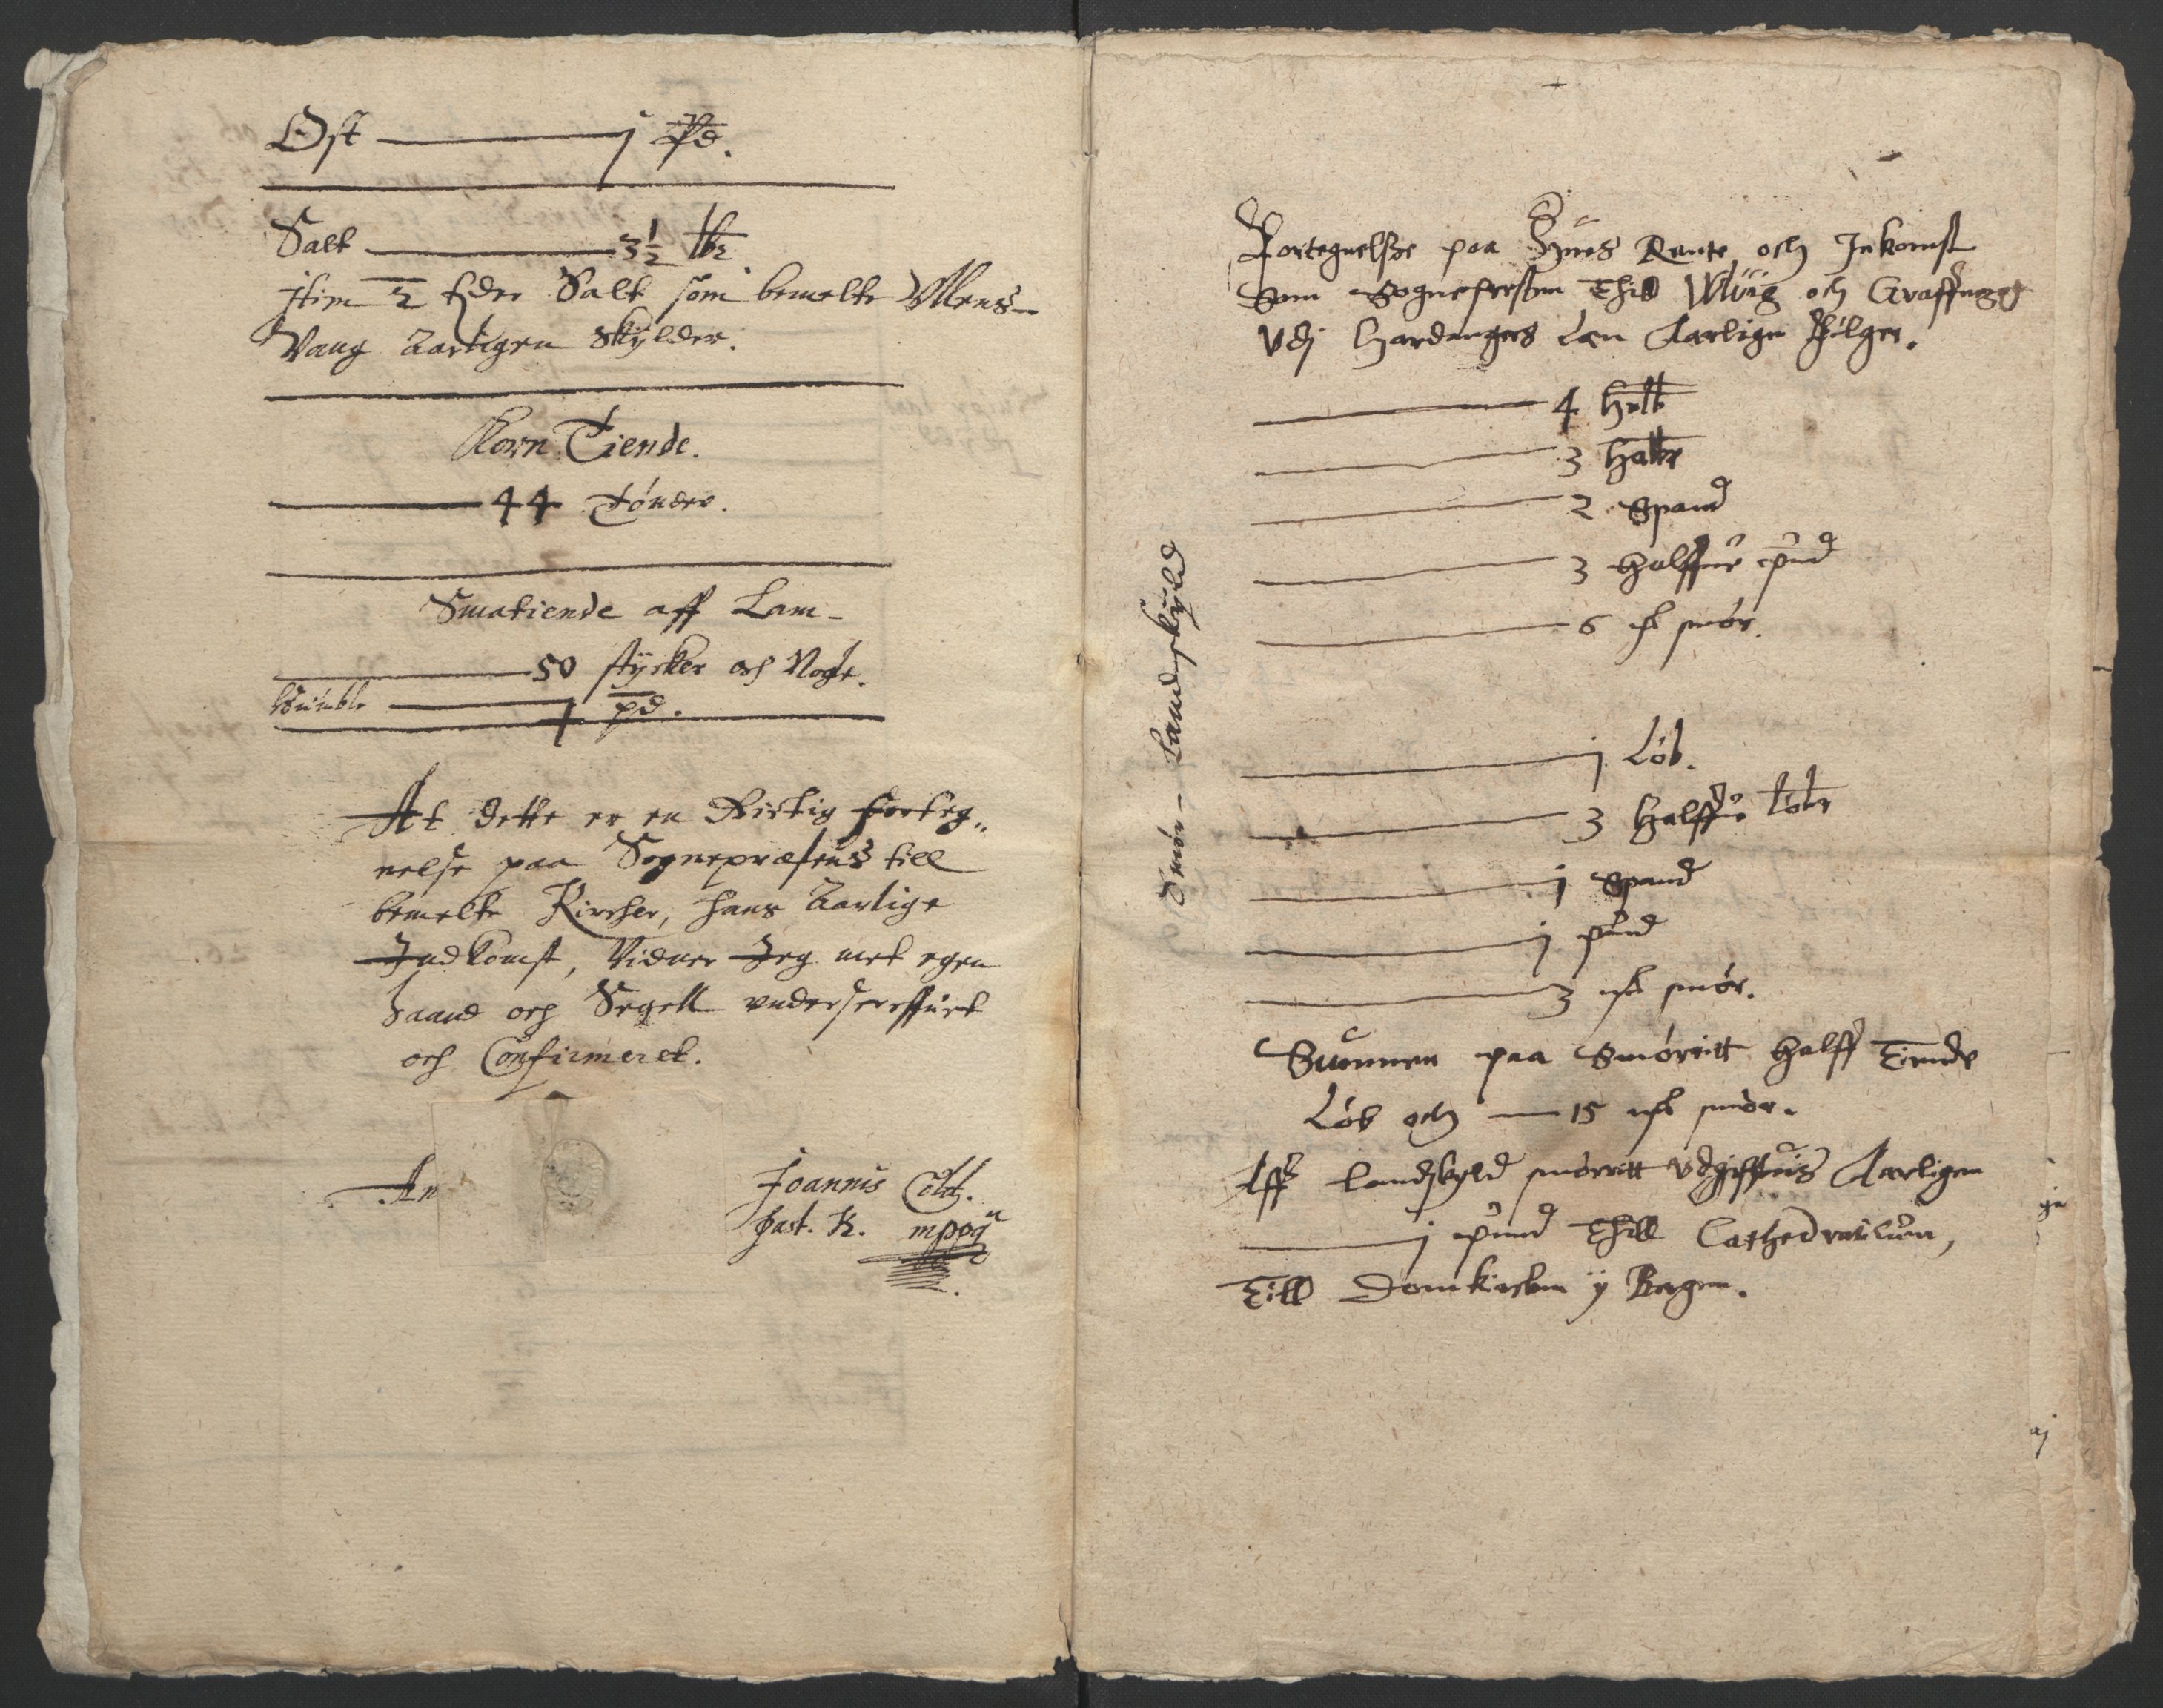 Ost j Pd.
Salt 3½ tbr
Item 2 tder Salt som bemelte Ullens-
Vang Aarligen Skylder.
Korn Tiende.
44 Tønder.
Smatiende aff Lam-
50 stycker och Nogle.
Humble 1 pd.
At dette er en Rictig forteg„
nelse paa Sognepræstens till
bemelte Kircher, hans Aarlige
Indkomst, Vidner Jeg met egen
Haand och Segell underscreffuet
och Confirmeret.
An
Joannis
Past. K. mppq
Fortegnelsze paa Hues Rente och Inkomst
Som Sognepresten Thill Wluig och Graffuen
Udj Hardangers Len Aarligen følger.
Smør-Landskyld
4
3
2 Spand
3 Halffue pund
6 smør.
j Løb.
3 Halffue Løber
j Spand
j pund
3 smør.
Summen paa Smørritt Halff Tiende
Løb och 15 smør.
Aff Landskyld smørritt udgiffuis Aarligen
j pund Thill Cathedraticum,
Till Domkircken y Bergen.